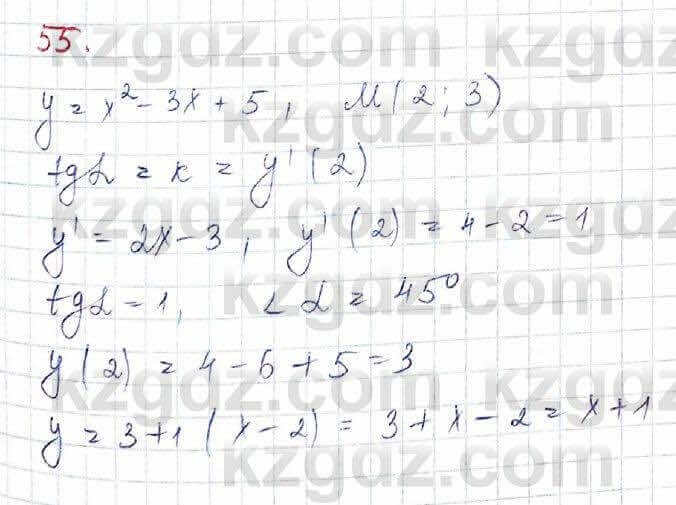 55.
y = x² - 3x + 5, M(2; 3)
tgα = k = y'(2)
y' = 2x - 3, y'(2) = 4 - 2 = 1
tgα = 1, ∠α = 45°
y(2) = 4 - 6 + 5 = 3
y = 3 + 1(x - 2) = 3 + x - 2 = x + 1
kzgdz.com
kzgdz.com
kzgdz.com
kzgdz.com
kzgdz.com
kzgdz.com